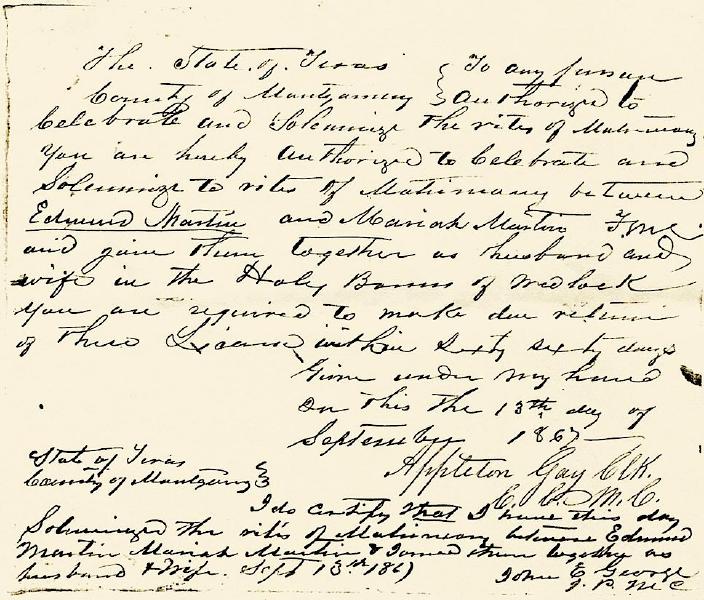 The State of Texas } To any person
County of Montgomery } authorized to
Celebrate and Solemnize the rites of Matrimony
You are hereby authorized to Celebrate and
Solemnize to rites of Matrimony between
Edmund Martin and Mariah Martin F.M.C.
and join them together as husband and
wife in the Holy Bonns of Wedlock
You are required to make due return
of these License within Sixty sixty days
Given under my hand
on this the 13th day of
September 1867
State of Texas
County of Montgomery }
Appleton Gay Clk.
C. Ct. M. C.
I do certify that I have this day
Solemnized the rites of Matrimony between Edmund
Martin Mariah Martin & Joined them together as
husband & wife. Sept 13th 1867
John E George
J. P. M C